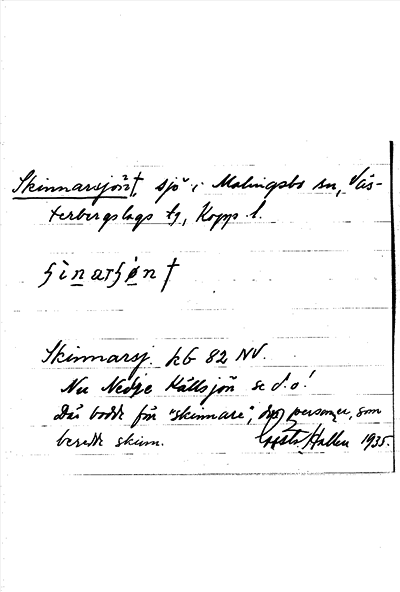 Skinnarsjön†, sjö i Malingsbo sn, Väs-
terbergslags tg, Kopp l.
ʃìnarʃøn †
Skinnarsj. kb 82 NV.
Nu Nedre Källsjön se d.o!
Där bodde förr "skinnare", dvs personer, som
beredde skinn. Gösta Hallen 1935.